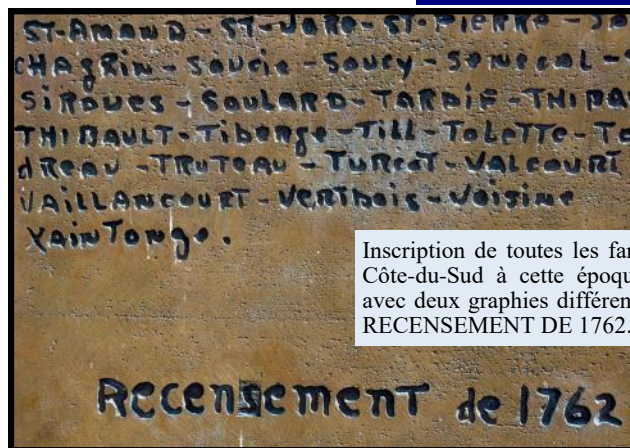 ST-AMAND - ST-JORE - ST-PIERRE -
CHAGRIN - SAUCIE - SOUCY - SENECAL -
SIROUES - SOULARD - TARDIF -
THIBAULT - Tiberge - Till - ToLeTTe -
dREAU - TRUTEAU - TURCOT - VALCOURT
VAILLANCOURT - VERTBois - Voisine
XAinTonge.
Inscription de toutes les
Côte-du-Sud à cette
avec deux graphies
RECENSEMENT DE 1762.
Recensement de 1762